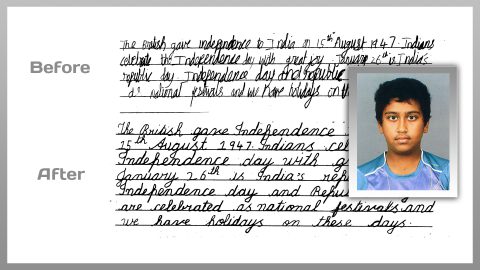 The British gave independence to India on 15th August 1947. Indians
celebrate the Independence day with great joy. January 26th is India's
Before
republic day. Independence day and republic
national festivals and we have holidays on
The British gave Independence
15th August 1947. Indians cel
Independence day with g
After
January 26th is India's rep
Independence day and Repu
are celebrated as national festivals and
we have holidays on these days.